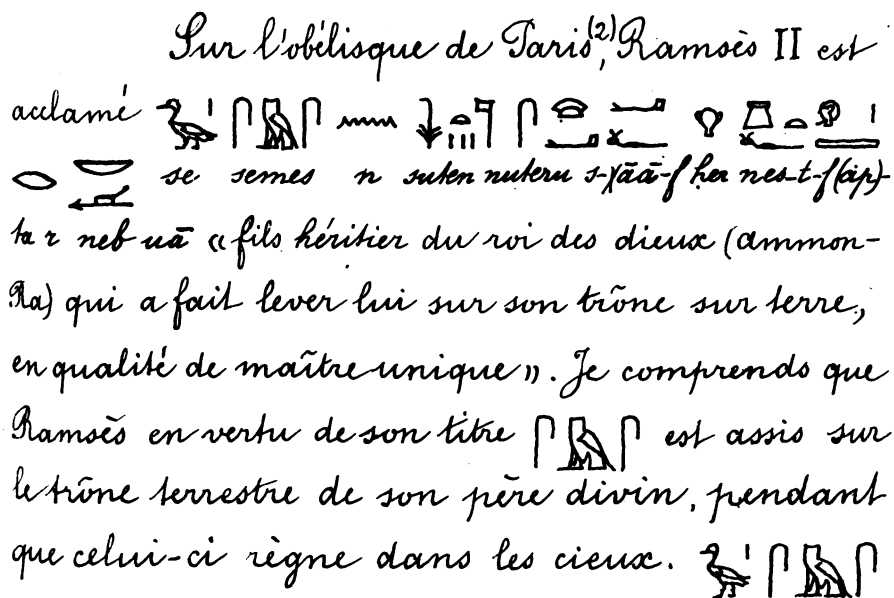 Sur l'obélisque de Paris(2), Ramsès II est
acclamé
se semes n suten nuteru s-χāā-f her nes-t-f (ȧp)-
ta r neb uā « fils héritier du roi des dieux (ammon-
Ra) qui a fait lever lui sur son trône sur terre,
en qualité de maître unique ». Je comprends que
Ramsès en vertu de son titre est assis sur
le trône terrestre de son père divin, pendant
que celui-ci règne dans les cieux.